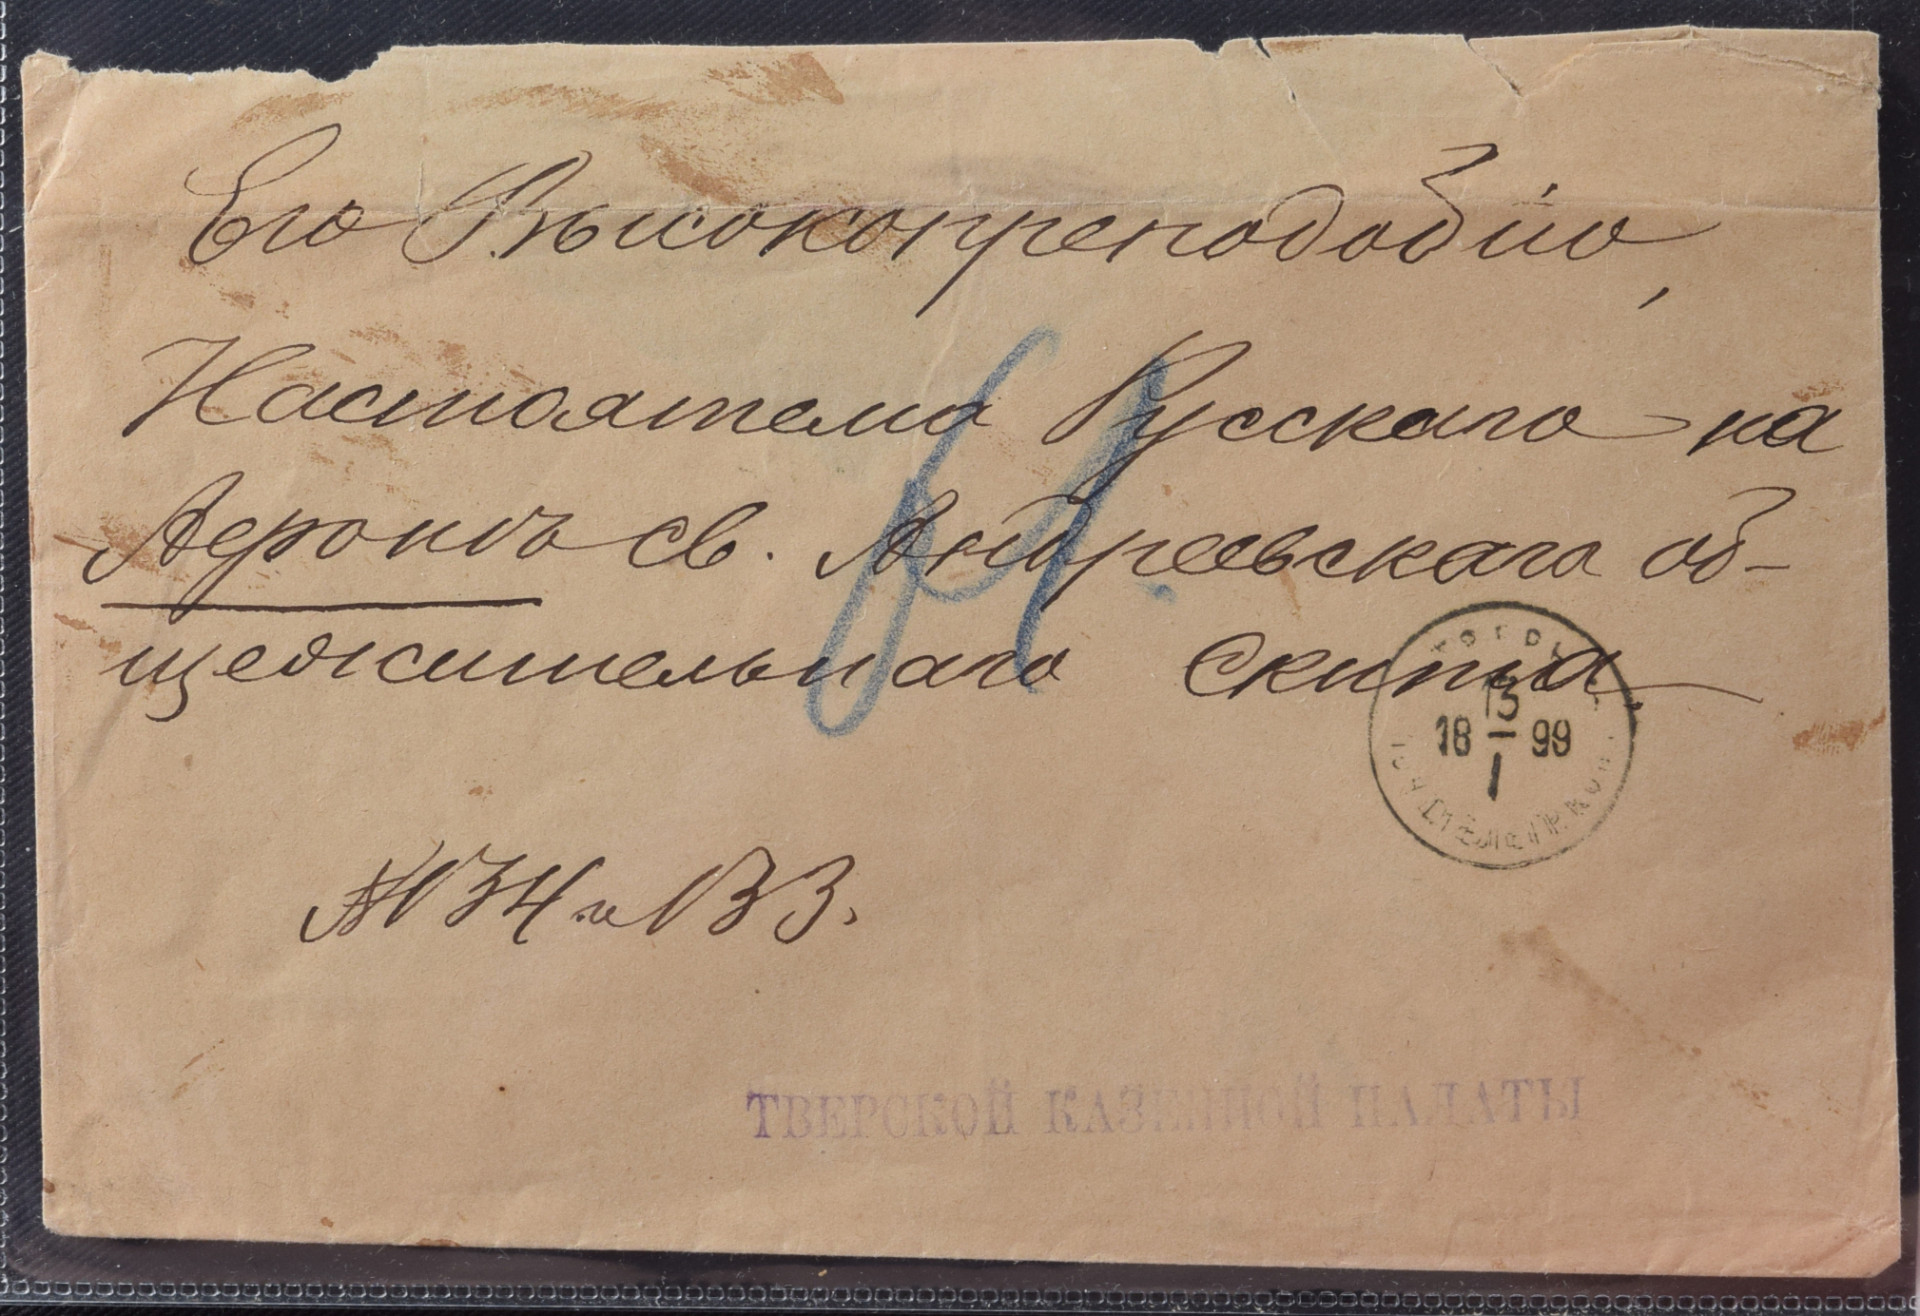 Его Высокопреподобію,
Настоятелю Русскаго на
Афонѣ св. Андреевскаго об-
щежительнаго скита,
13
18 99
1
№ 34 и 133.
ТВЕРСКОЙ КАЗЕННОЙ ПАЛАТЫ